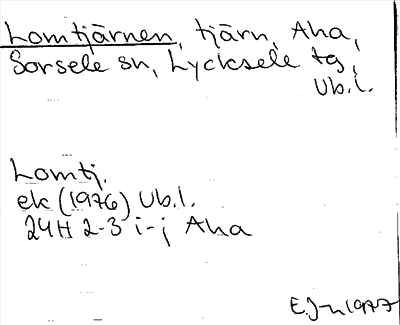 Lomtjärnen, tjärn, Aha,
Sorsele sn, Lycksele tg,
Ub.l.
Lomtj.
ek (1976) Ub.l.
24H 2-3 i-j Aha
E.J-n 1977